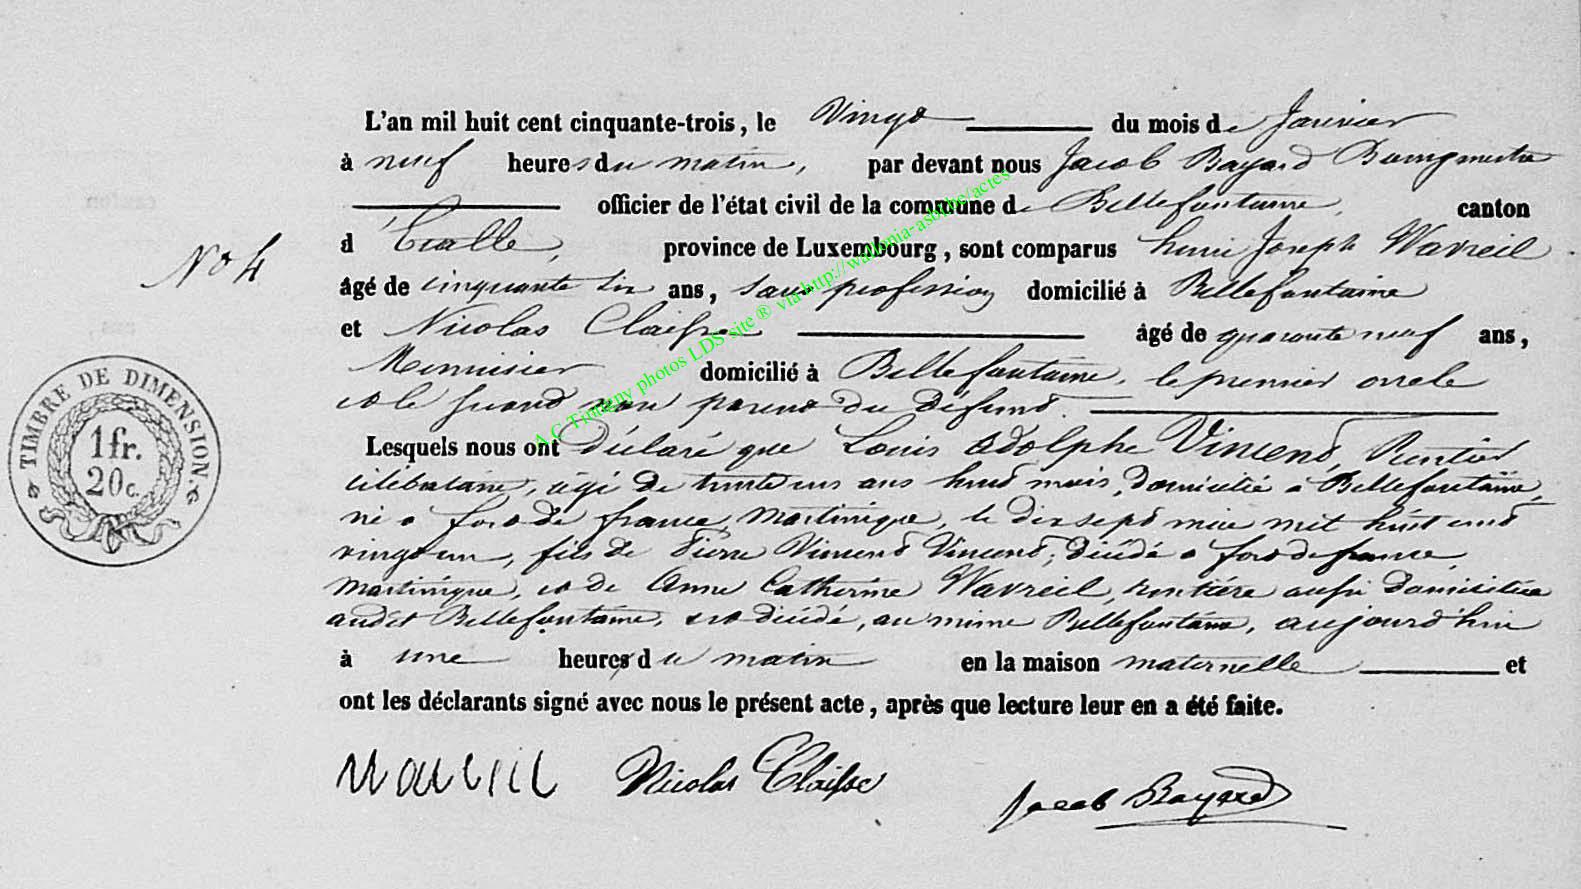 L'an mil huit cent cinquante-trois, le Vingt du mois de Janvier
à neuf heures du matin, par devant nous Jacob Bayard Bourgmestre
officier de l'état civil de la commune de Bellefontaine, canton
d'Etalle, province de Luxembourg, sont comparus henri Joseph Wavreil
No 4
âgé de cinquante six ans, sans profession domicilié à Bellefontaine
et Nicolas Claisse âgé de quarante neuf ans,
Menuisier domicilié à Bellefontaine, le premier oncle
et le second non parent du défunt.
Lesquels nous ont déclaré que Louis Adolphe Vincent, Rentier
célibataire, âgé de trente un ans huit mois, domicilié a Bellefontaine,
né a fort de france, Martinique, le dix sept mai mil huit cent
vingt un, fils de Pierre Vincent Vincent, décédé a fort de france,
Martinique, et de Anne Catherine Wavreil, rentière aussi domiciliée
audit Bellefontaine, est décédé, au même Bellefontaine, aujourd'hui
à une heures du matin en la maison maternelle et
ont les déclarants signé avec nous le présent acte, après que lecture leur en a été faite.
Wavreil Nicolas Claisse Jacob Bayard
TIMBRE DE DIMENSION.
1 fr.
20 c.
A.C Tintigny photos LDS site ® via http://wallonia-asbl.be/actes